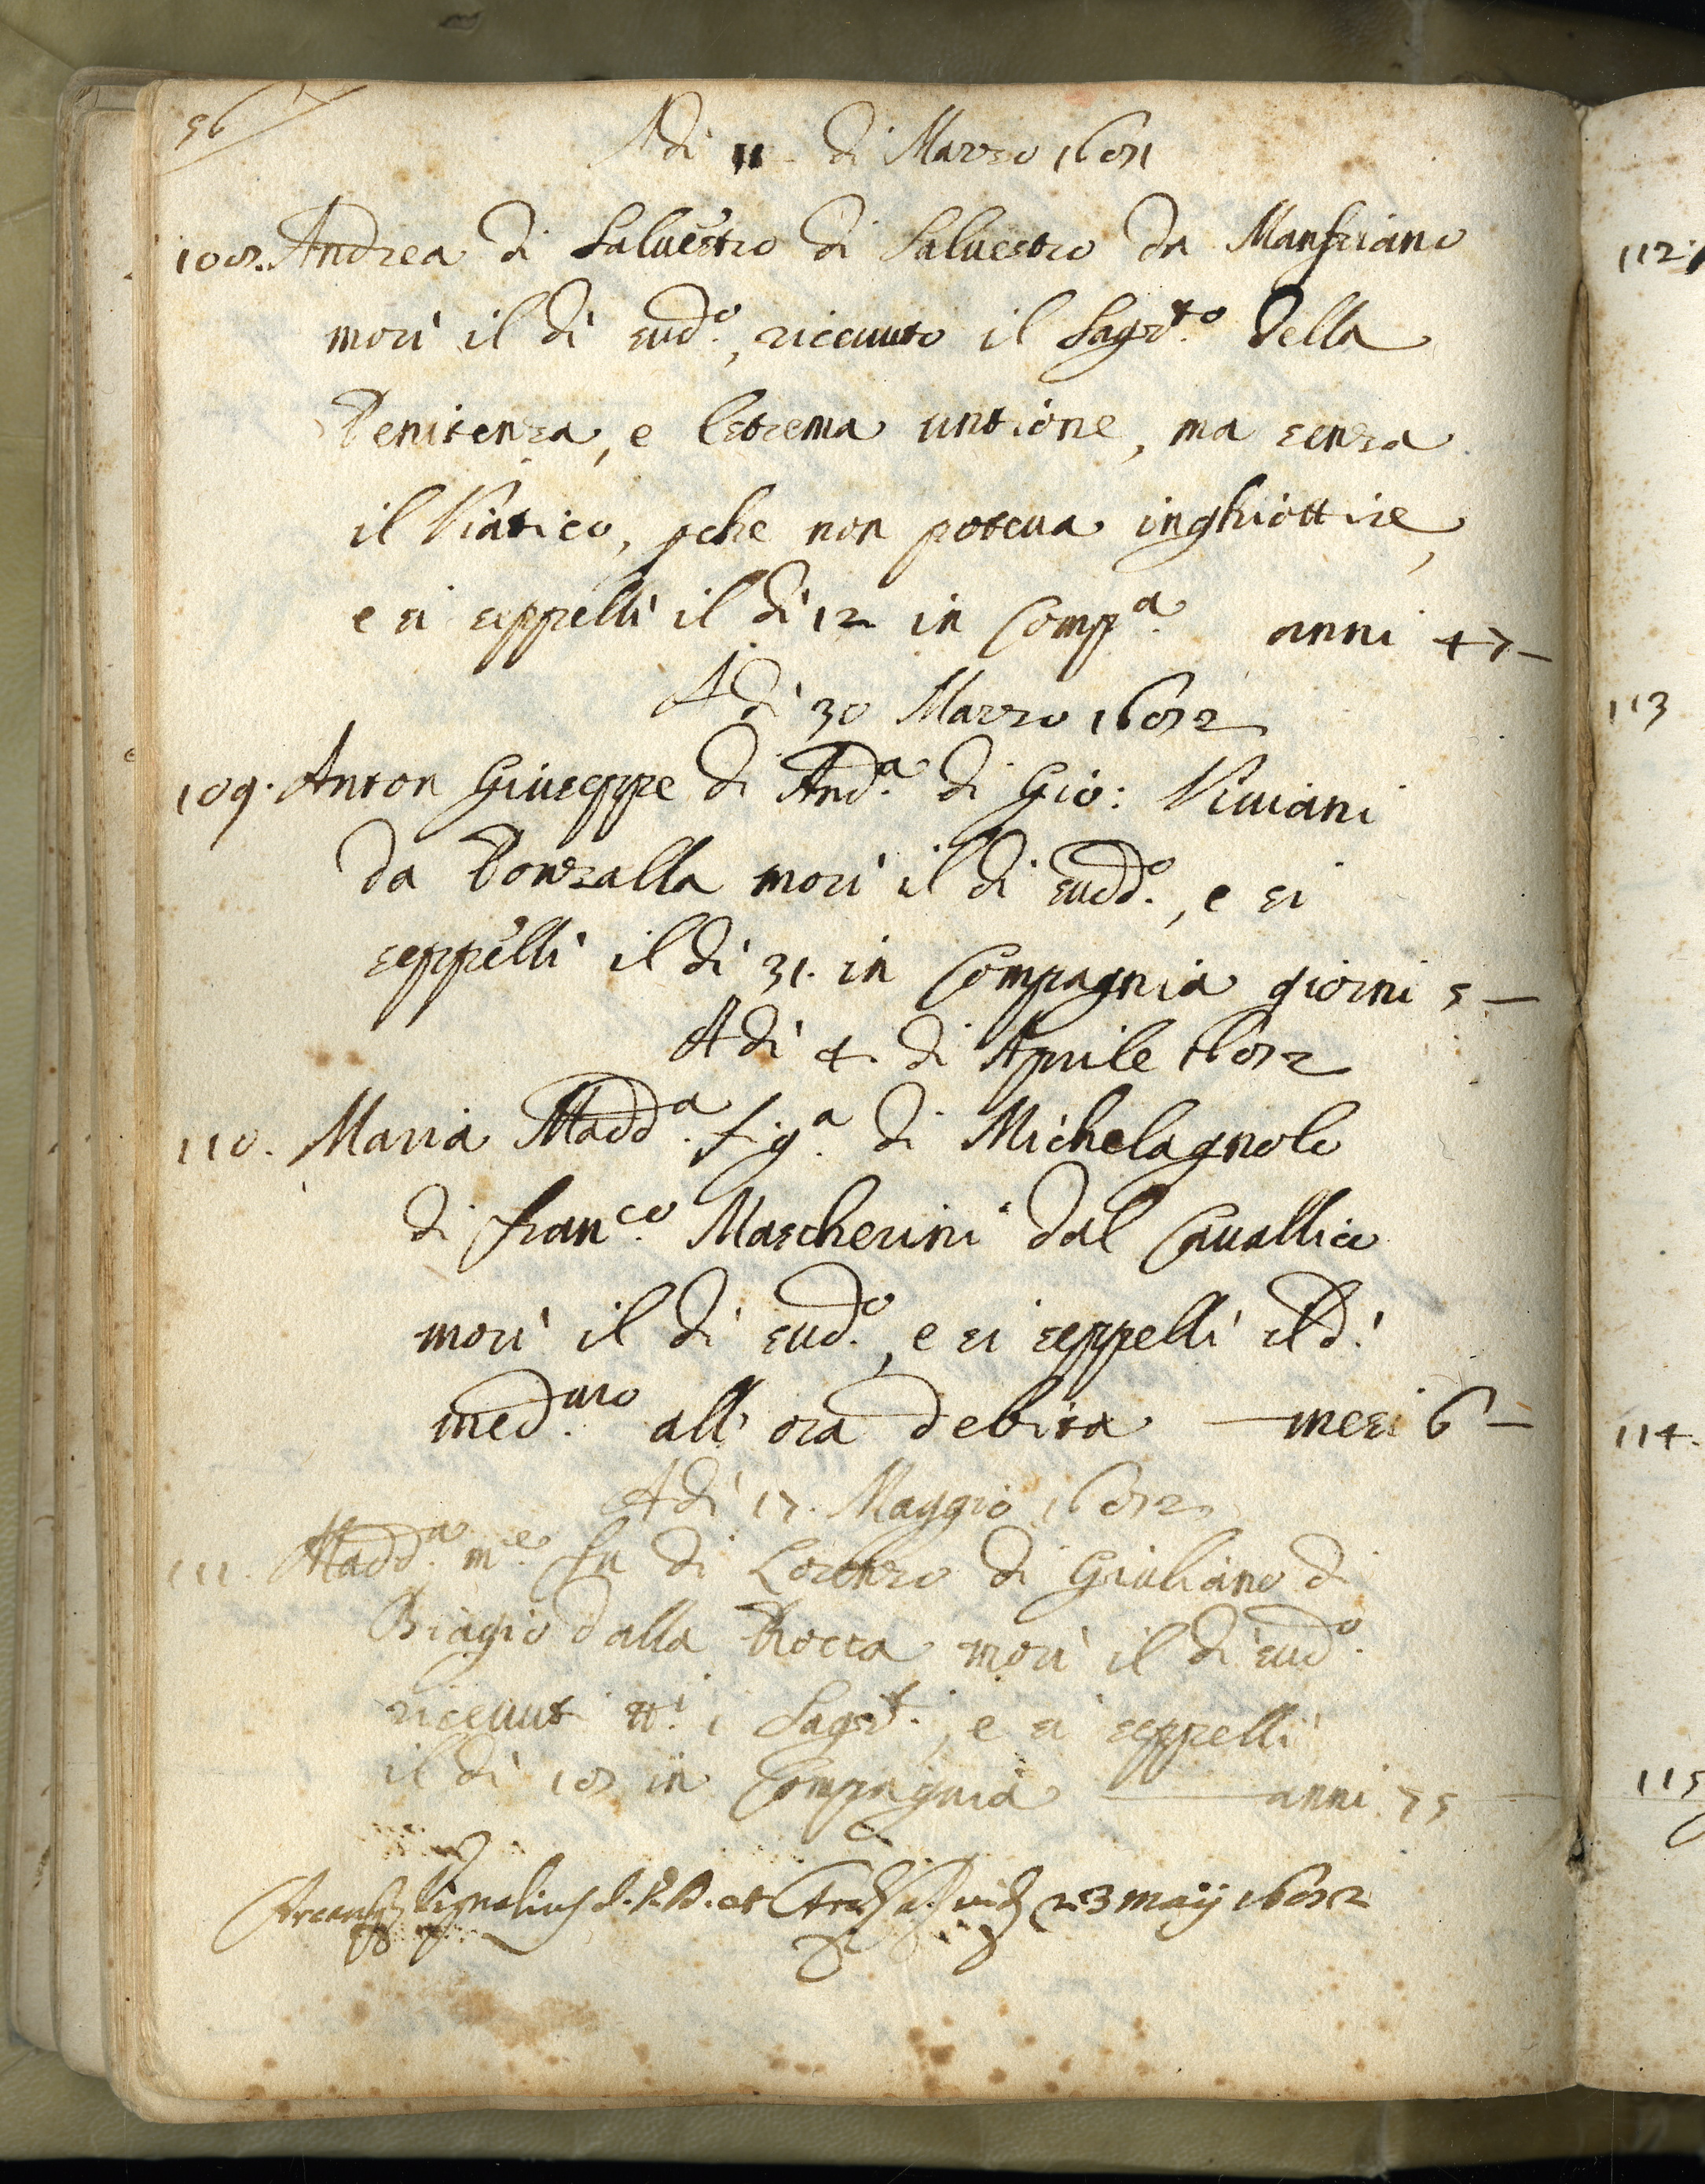 56
Adi 11 di Marzo 1681
108. Andrea di Salvestro di Salvestro da Manfriano
morì il dì sud.o, riceuuto il Sagr.to della
Penitenza, e lestrema untione, ma senza
il Viatico, pche non poteua inghiottire,
e si seppellì il dì 12 in Comp.a anni 47 –
Adì 30 Marzo 1682
109. Anton Giuseppe di And.a di Gio: Viuiani
da Ponzalla morì il dì sudd.o, e si
seppellì il dì 31. in Compagnia giorni 5 –
Adì 4. di Aprile 1682
110. Maria Madd.a fig.a di Michelagnolo
di Fran.co Mascherini dal Cauallico
morì il dì sud.o, e si seppellì il dì
med.mo all' ora debita – mesi 6 –
Adì 17. Maggio 1682
111. Madd.a m.e fu di Lorenzo di Giuliano di
Biagio dalla Rocca morì il dì sud.o
riceuut tt.i i Sagr.t, e si seppellì
il dì 18 in Compagnia – anni 75
23 maij 1682
112
113
114.
115